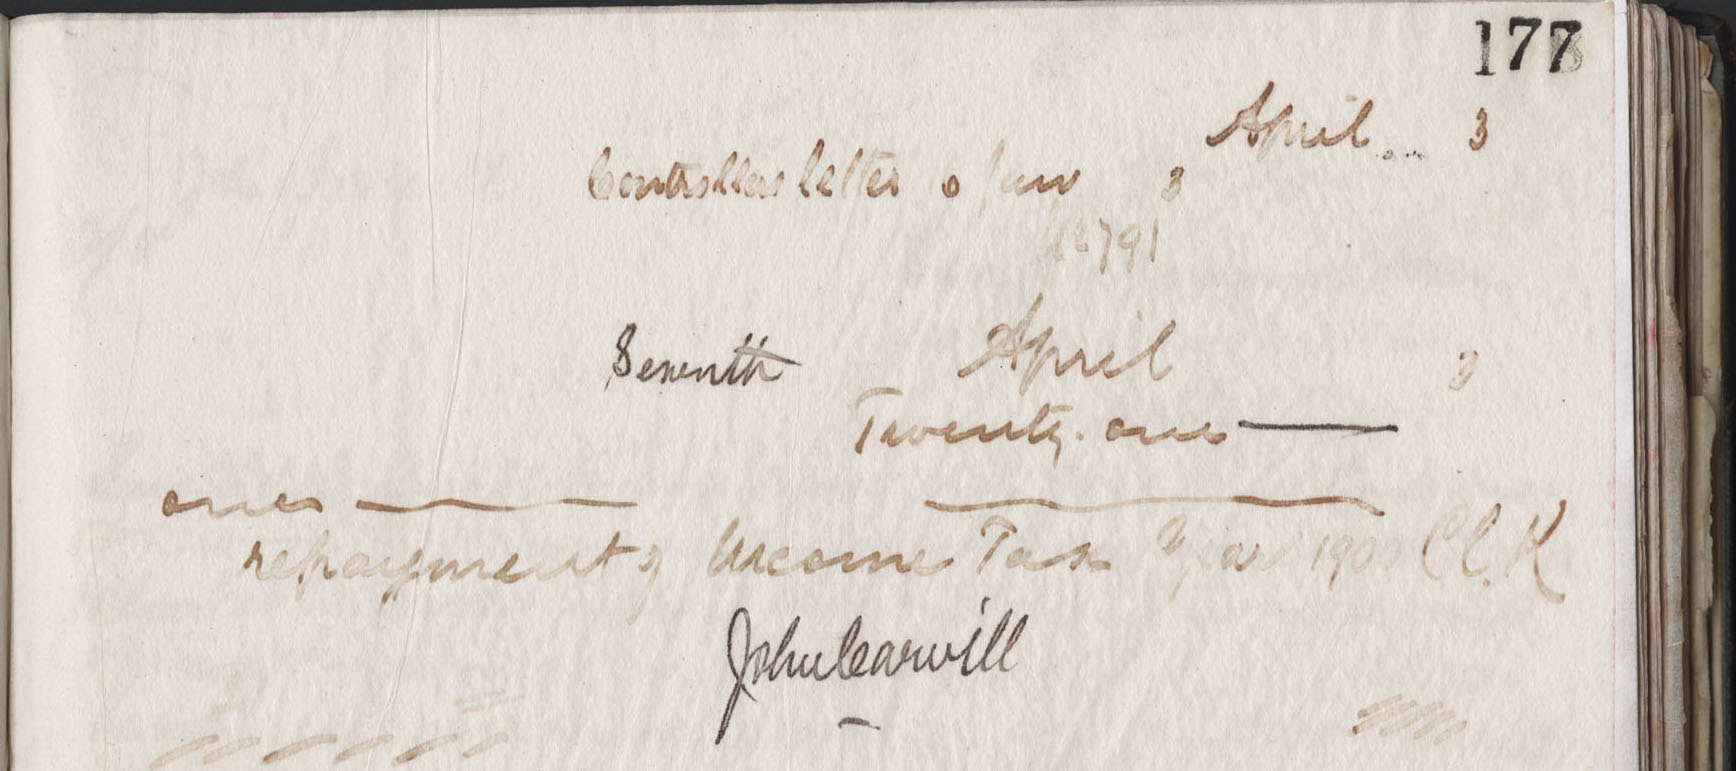 177
April 3
Controllers letter of Jan 3
No 791
Seventh April 3
Twenty-one
one
repayment of Income Tax Year 1900 C.C.K
John Carvill